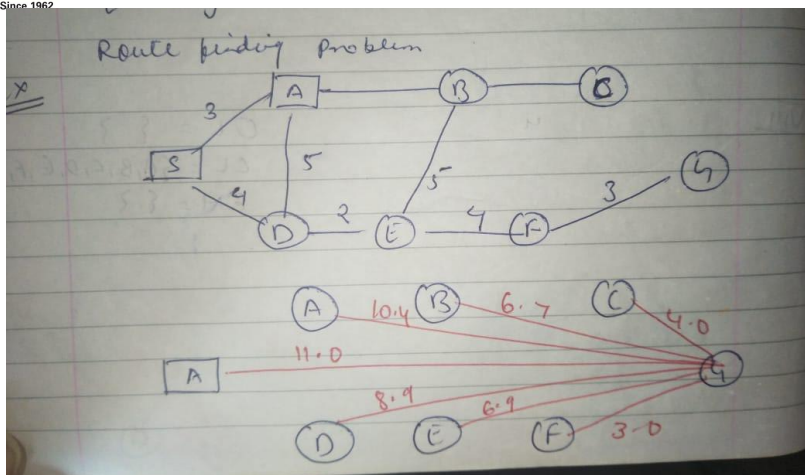 Since 1962
Route finding Problem
Ex
A B C
3
S 5 5 G
4 3
D 2 E 4 F
A 10.4 B 6.7 C
4.0
11.0
A G
8.9 6.9
D E F 3.0